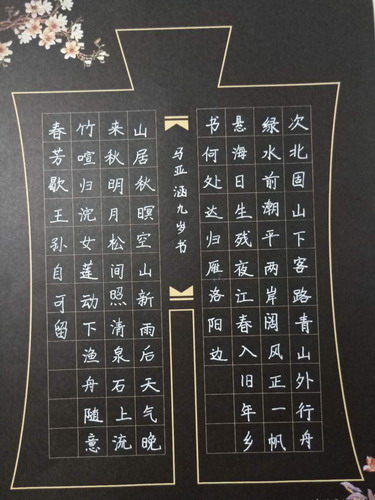 次北固山下客路青山外行舟
绿水前潮平两岸阔风正一帆
悬海日生残夜江春入旧年乡
书何处达归雁洛阳边
马亚涵九岁书
山居秋暝空山新雨后天气晚
来秋明月松间照清泉石上流
竹喧归浣女莲动下渔舟随意
春芳歇王孙自可留